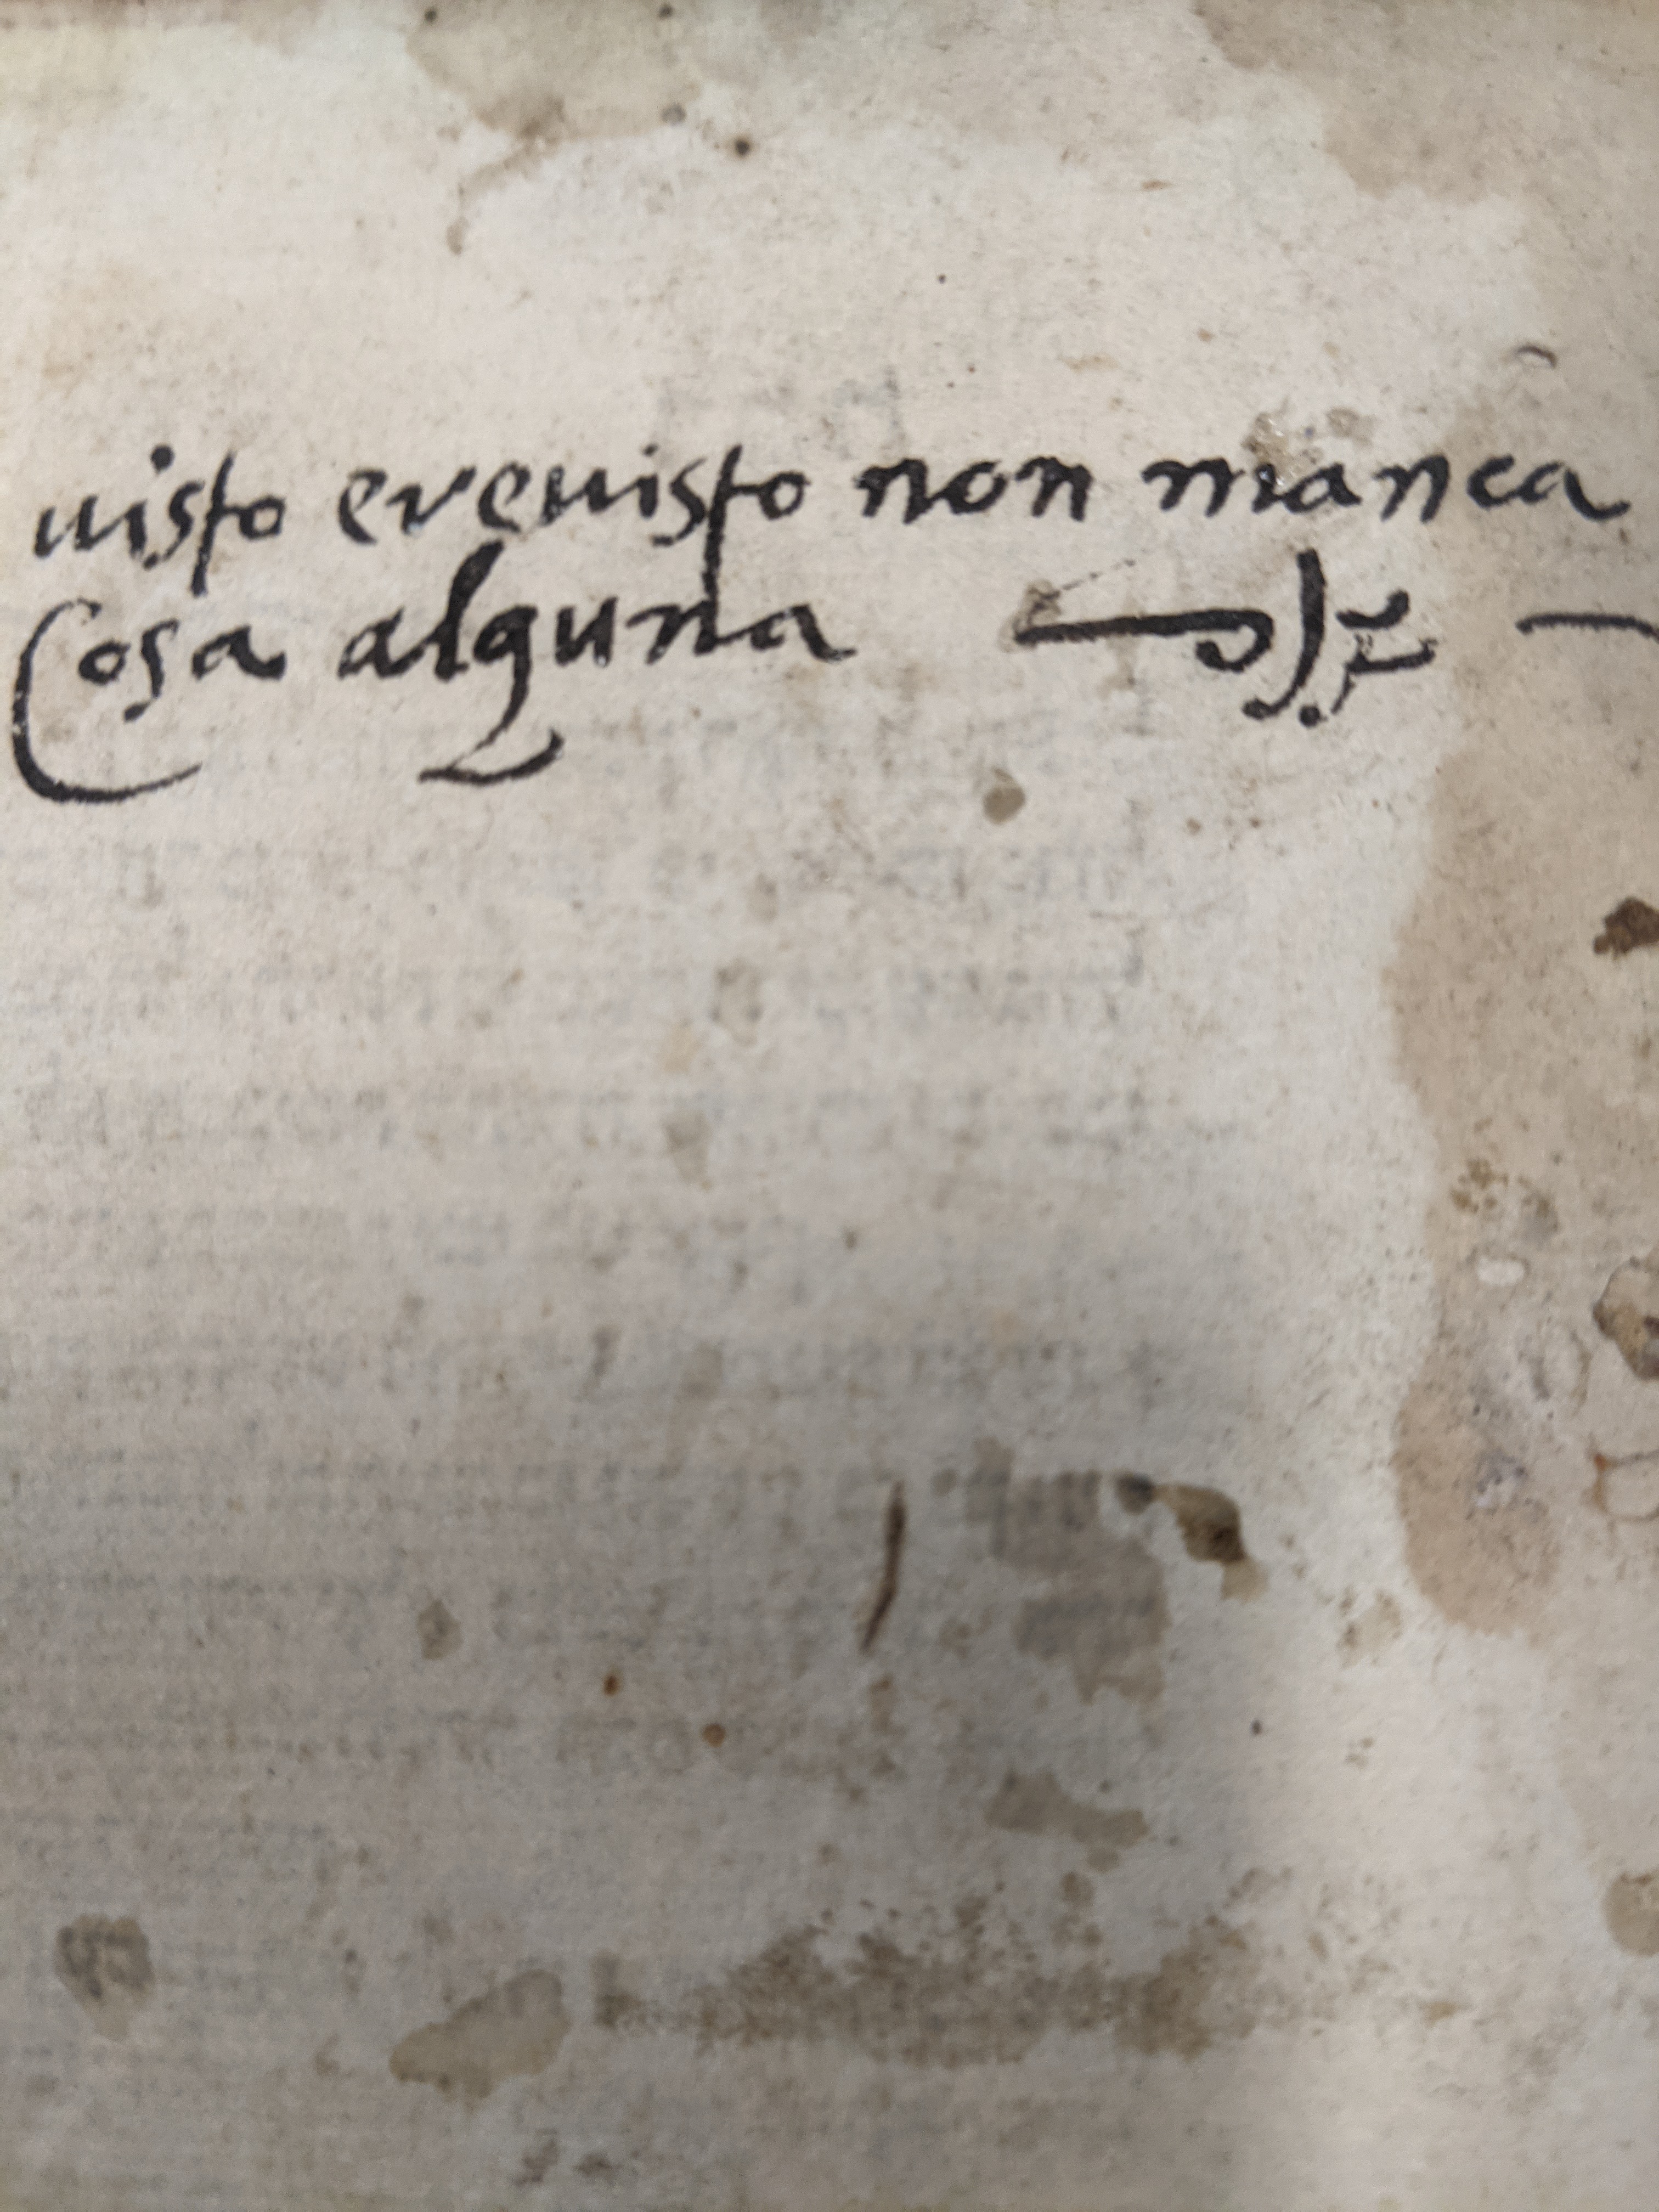 uisto ereuisto non manca
Cosa alguna